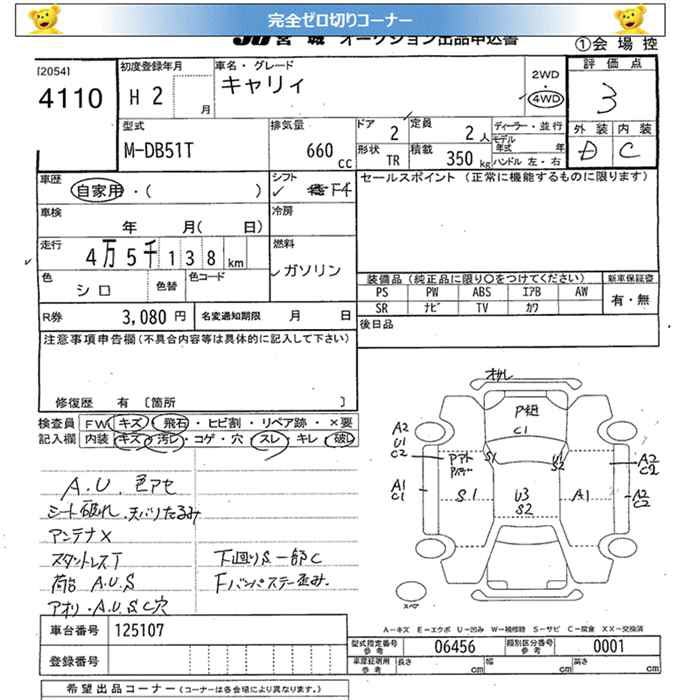 完全ゼロ切りコーナー
JU宮城 オークション出品申込書 ①会場控
[2054]
4110
初度登録年月 H2 月
車名・グレード キャリィ
2WD
4WD
評価点 3
外装 内装
D C
型式 M-DB51T
排気量 660 cc
ドア 2
定員 2人
ディーラー・並行
モデル年式 年
形状 TR
積載 350 kg
ハンドル 左・右
車歴 自家用・( )
シフト F4
セールスポイント (正常に機能するものに限ります)
車検 年 月( 日)
冷房
走行 4万5千138km
燃料 ガソリン
色 シロ 色替 色コード
装備品(純正品に限り○をつけてください) 新車保証書
PS PW ABS エアB AW 有・無
SR ナビ TV カワ
R券 3,080円 名変通知期限 月 日
後日品
注意事項申告欄(不具合内容等は具体的に記入して下さい)
修復歴 有 〔箇所 〕
検査員 FW キズ・飛石・ヒビ割・リペア跡・×要
記入欄 内装 キズ・汚レ・コゲ・穴・スレ・キレ・破レ
A.U. 色アセ
シート破れ.天バリたるみ
アンテナX
スタントレスT 下廻りS一部C
荷台 A.U.S Fバンパステー歪み.
アオリ・A.U.S.C穴
P組
C1
A2
U1
C2
S1
U1
S2
A2
C2
A1
C1
S1
U3
S2
A1
A2
C2
スペア
A－キズ E－エクボ U－凹み W－補修跡 S－サビ C－腐食 XX－交換済
車台番号 125107
型式指定番号 参考 06456 類別区分番号 参考 0001
登録番号
車庫証明用 参考 長さ cm 幅 cm 高さ cm
希望出品コーナー(コーナーは各会場により異なります。)